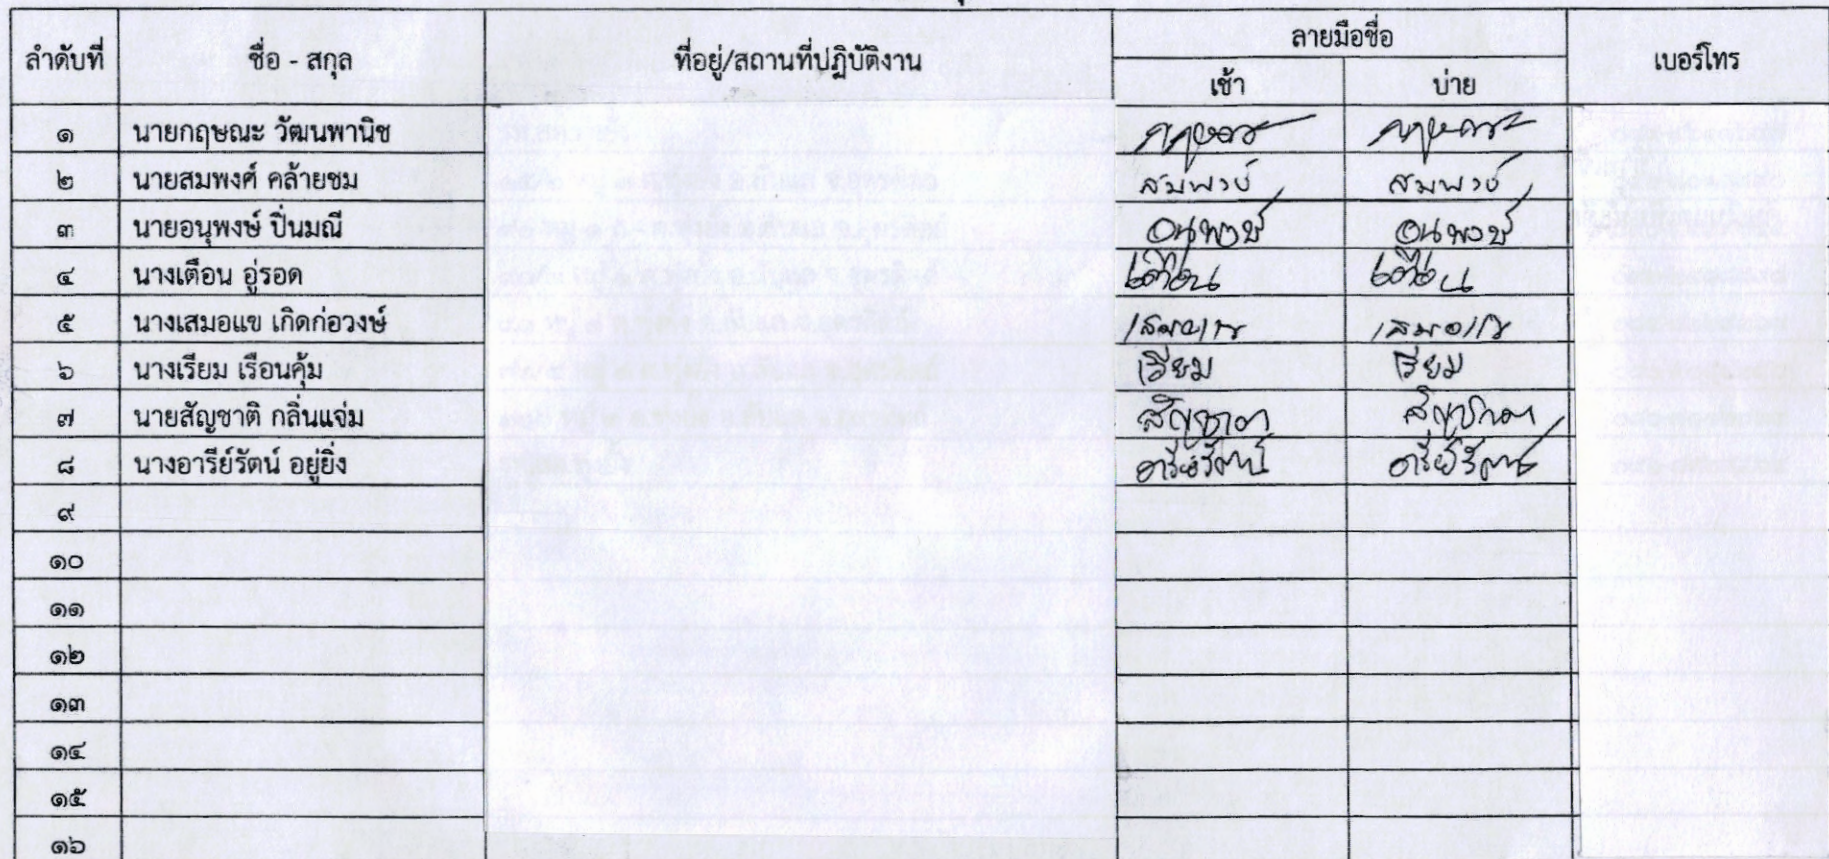 ลำดับที่ ชื่อ - สกุล ที่อยู่/สถานที่ปฏิบัติงาน ลายมือชื่อ เบอร์โทร
เช้า บ่าย
๑ นายกฤษณะ วัฒนพานิช กฤษณะ กฤษณะ
๒ นายสมพงศ์ คล้ายชม สมพงษ์ สมพงษ์
๓ นายอนุพงษ์ ปิ่นมณี อนุพงษ์ อนุพงษ์
๔ นางเตือน อู่รอด เตือน เตือน
๕ นางเสมอแข เกิดก่อวงษ์ เสมอแข เสมอแข
๖ นางเรียม เรือนคุ้ม เรียม เรียม
๗ นายสัญชาติ กลิ่นแจ่ม สัญชาต สัญชาต
๘ นางอารีย์รัตน์ อยู่ยิ่ง อารีย์รัตน์ อารีย์รัตน์
๙
๑๐
๑๑
๑๒
๑๓
๑๔
๑๕
๑๖